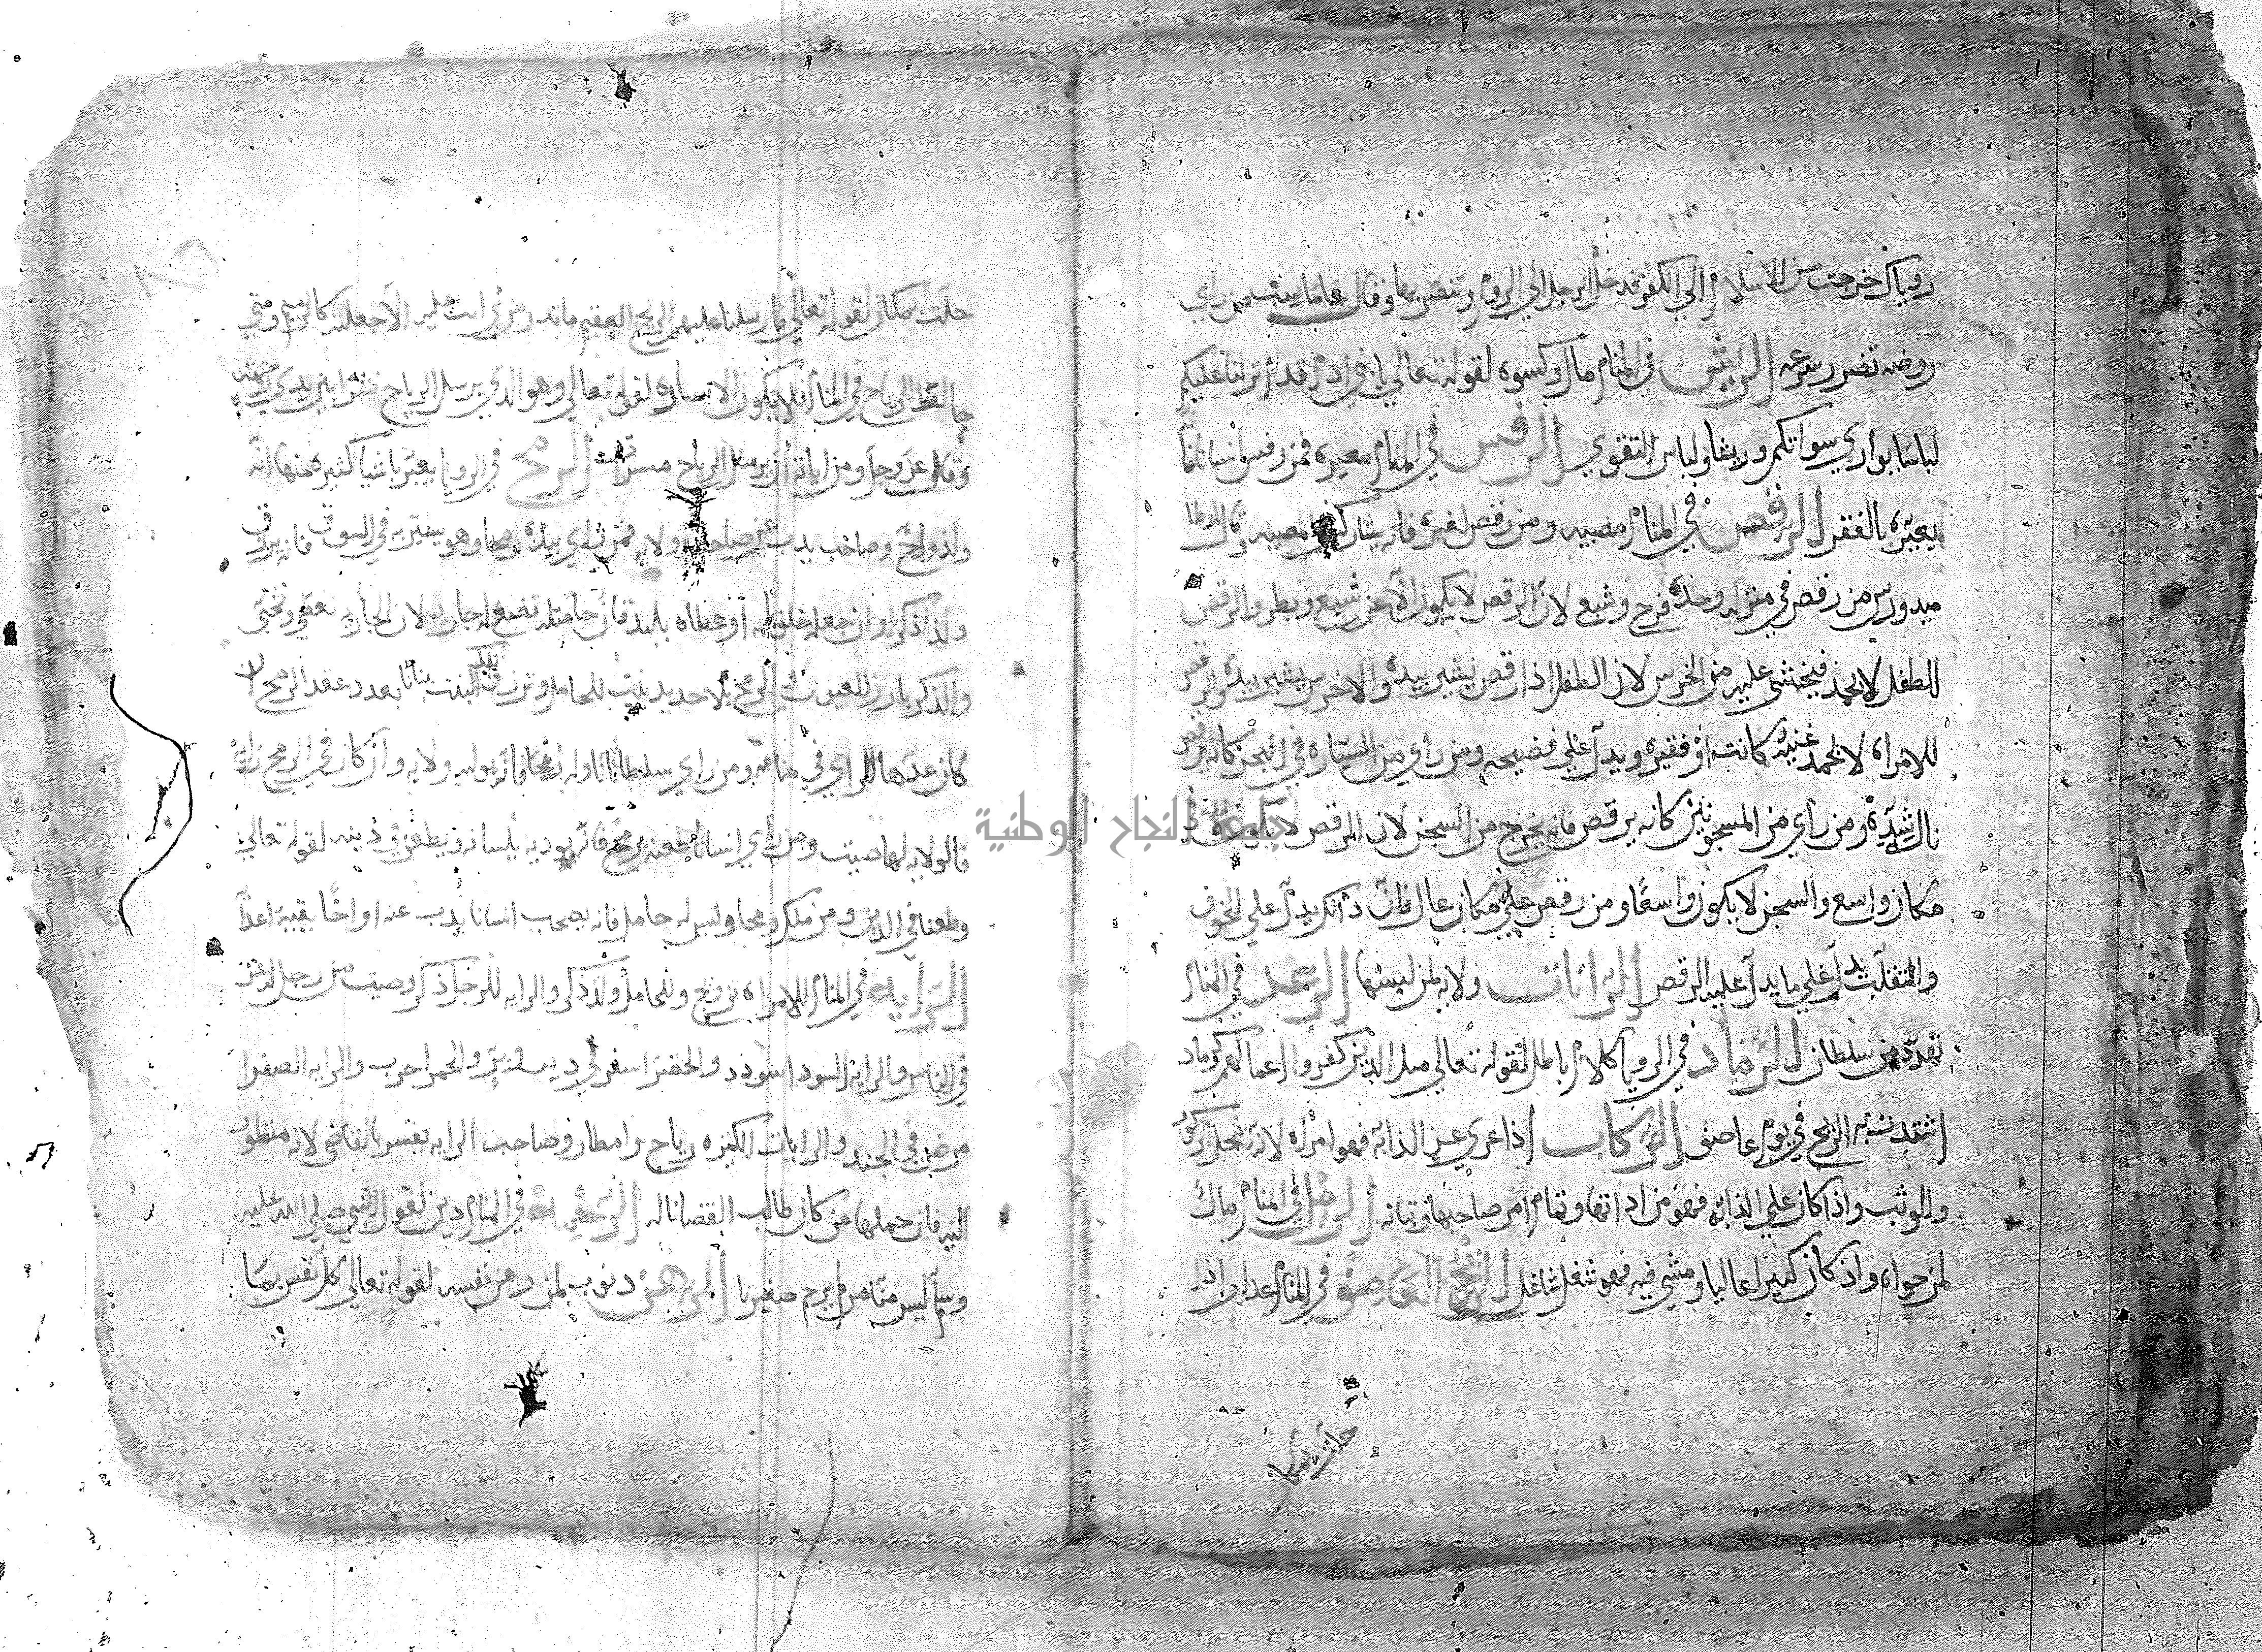 روياك خرجت من الاسلام الي الكفر فدخل الرجل الي الروم وتنصر بها وقال عاماينت من راي
روضه تضرر بفرعه الريش في المنام مال وكسوه لقوله تعالي يا بني ادم قد انزلنا عليكم
لباسا يواري سواتكم وريشا ولباس التقوي الرفس في المنام معيره فمن رفس انسانا فانه
يعيره بالفقر الرقص في المنام مصيبه ومن رقص لغيره فانه يشارك في المصيبه وقال ارطا
ميدورس من رقص في منزله وحده فرح وشبع لان الرقص لا يكون الا عن شبع وبطر والرقص
للطفل لا يحمد فيخشي عليه من الخرس لان الطفل اذا رقص يشير بيده والاخرس يشير بيده والرقص
للامراه لا يحمد غنيه كانت او فقيره ويدل علي فضيحه ومن راي من السياره في البحر كانه يرقص
نال شده ومن راي من المسجونين كانه يرقص فانه يخرج من السجن لان الرقص لا يكون الا في
مكان واسع والسجن لا يكون واسعا ومن رقص علي مكان عال فان ذلك يدل علي الخوف
والتقلب يدل علي ما يدل عليه الرقص الرانات ولايه لمن لبسها الرعد في المنام
تهدد من سلطان الرماد في الرويا كلام باطل لقوله تعالي مثل الذين كفروا اعمالهم كرماد
اشتدت به الريح في يوم عاصف الركاب اذا عري عن الدابه فهو امراه لانه محل الركوب
والوثب واذا كان علي الدابه فهو من اداتها وتمام امر صاحبها وثباته الرمل في المنام مال
لمن حواه واذا كان كثيرا عاليا ومشي فيه فهو شغل شاغل الريح العاصف في المنام عذاب اذا
حلت بمكان
حلت بمكان لقوله تعالي فارسلنا عليهم الريح العقيم ما تذر من شي اتت عليه الا جعلته كالرميم ومتي
جا لفظ الرياح في المنام فلا يكون الا بشاره لقوله تعالي وهو الذي يرسل الرياح نشرا بين يدي رحمته
وقال عز وجل ومن اياته ان يرسل الرياح مبشرات الرمح في الرويا يعبر باشيا كثيره منها انه
ولد واخ وصاحب يذب عن صاحبه وولايه فمن راي بيده رمحا وهو يسير به في السوق فانه يرزق
ولدا ذكرا وان جعله خلف او عطاه بلبد فان حامتله تضع له جاريه لان الجاريه تغطي وتخبي
والذكر بارز للعيون في الرمح بلا حديد بنت للحامل وترزق تلك البنت بناتا بعدد عقد الرمح ان
كان عدها الراي في منامه ومن راي سلطانا ناوله رمحا فانه يوليه ولايه وان كان في الرمح رايه
فالولايه لها صيت ومن راي انسانا طعنه برمح فانه يوديه بلسانه ويطعن في دينه لقوله تعالي
وطعنا في الدين ومن ملك رمحا وليس له حامل فانه يصحب انسانا يذب عنه او اخا يقيه اعداء
الرايه في المنام للامراه تزوج وللحامل ولد ذكر والرايه للرجل ذكر وصيت من رجل اعز
في الناس والرايه السودا سودد والخضرا سفر في دين وبر والحمرا حرب والرايه الصفرا
مرض في الجند والرايات الكثيره رياح وامطار وصاحب الرايه يفسر بالقاضي لانه منظور
اليه فان حملها من كان طالب القضا ناله الرحمه في المنام دين لقول النبي صلي الله عليه
وسلم ليس منا من لم يرحم صغيرنا الرهن ذنوب لمن رهن نفسه لقوله تعالي كل نفس بما
جامعة النجاح الوطنية